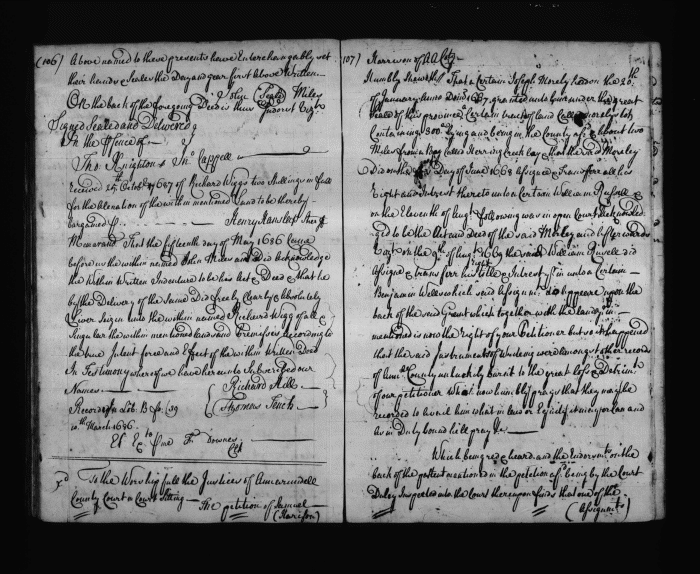 (106) Above named to these presents have Enterchangably set
their hands & Seales the Day and year first Above Written
John (Seale) Miles
On the back of the foregoing Deed is thus Indorst Vizt
Signed Sealed and Delivered
In the p'sence of
Tho. Knighton & Jno. Cappell
Received 24th October 1687 of Richard Wigg two shillings in full
for the alienation of the within mentioned Land to be thereby
bargained Henry Hanslap Sher'f
Memorand. That the fifteenth day of May 1686 Came
before us the within named John Miles and Did acknowledge
the Within Written Indenture to be his Act & Deed & that he
by the Delivery of the Same Did freely Clearly & absolutely
Liver Seizin unto the within named Richard Wigg of all &
Singular the within mentioned land and Premisses according to
the true Intent force and Effect of the within Written Deed
In Testimony whereof we have hereunto Subscribed our
Names Richard Hill
Record in Lib. B fo. 139 Thomas Tench
10th March 1696.
Downes
Clk
To the Worshipfull the Justices of Annarundell
County Court in Court Sitting The petition of Samuel
(Harrison)
107) Harrison of AA Cty
Humbly Sheweth That a Certain Joseph Morely had on the 20th
of January Anno Dom. 1667 granted unto him under the great
Seale of this province a Certain tract of land Called Morelys lott
Containing 300 a. lying and being in the County afd about two
Miles from a Bay called Herring Creek bay that the said Morley
Did on the Day of June 1668 assigne & Transferr all his
Right and Interest thereto unto a Certain William Russell &
on the Eleventh of Augt following was in open Court acknowledged
to be the Act and Deed of the said Morley and afterwards
on the 9th of Augt 1669 the said William Russell did
assigne & transferr his title & Interest unto a Certain
Benjamin Wells which said assignmts do appeare upon the
back of the said Grant which together with the land in
mentioned is now the right of your Petitioner but so it happened
that the said Instruments of Writing were amongst other records
of Ann County unluckily burnt to the great loss & Detrimt
of your petitioner What now humbly prays that they may be
recorded to avail him what in law or Equity it may or can and
as in Duty bound hee'll pray &c
Which being read heard and the Endorsmts. on the
back of the pattent mentioned in the petition afd being by the Court
Duley Inspected into the Court thereupon finds that one of the
(Assignmts)